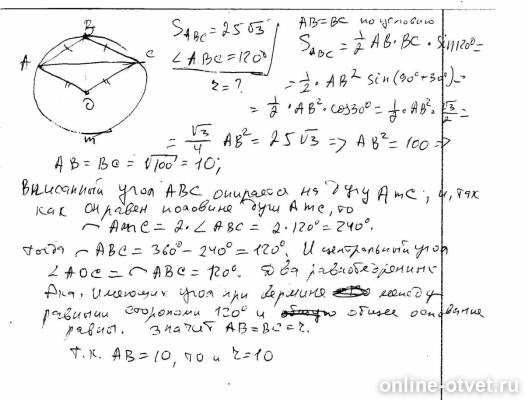 B
A
C
O
m
S_ABC = 25√3
∠ABC = 120°
r = ?
AB = BC по условию
S_ABC = 1/2 AB · BC · Sin 120° =
= 1/2 · AB² sin(90° + 30°) =
= 1/2 · AB² · cos 30° = 1/2 · AB² · √3/2 =
= √3/4 AB² = 25√3 => AB² = 100 =>
AB = BC = √100 = 10;
Вписанный угол ABC опирается на дугу AmC, и, так
как он равен половине дуги AmC, то
◠AmC = 2 · ∠ABC = 2 · 120° = 240°.
Тогда ◠ABC = 360° - 240° = 120°. И центральный угол
∠AOC = ◠ABC = 120°. Два равнобедренных
Δка, имеющих угол при вершине между
равными сторонами 120° и общее основание
равны. Значит AB = BC = r.
Т.к. AB = 10, то и r = 10
online-otvet.ru